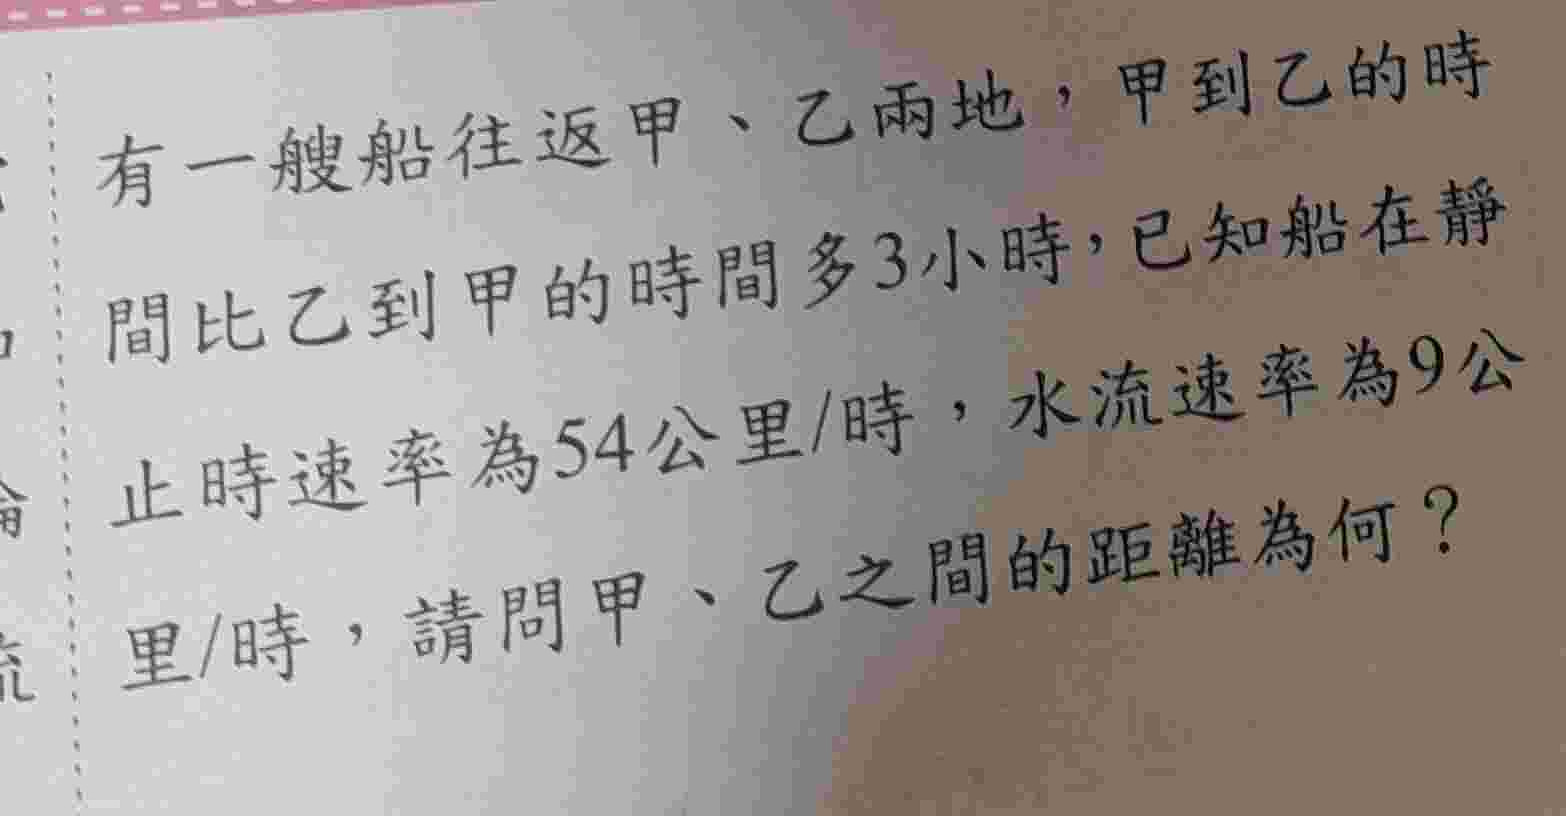 有一艘船往返甲、乙兩地，甲到乙的時
間比乙到甲的時間多3小時，已知船在靜
止時速率為54公里/時，水流速率為9公
里/時，請問甲、乙之間的距離為何？